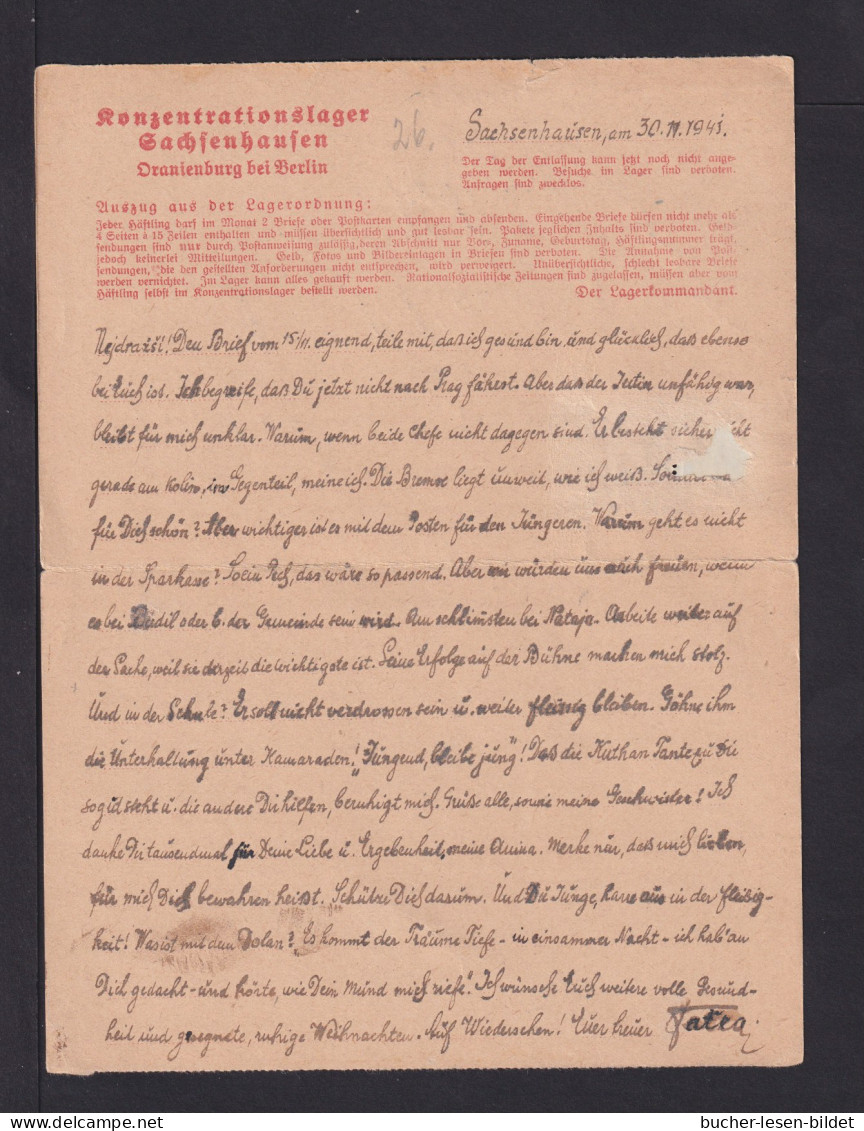 Konzentrationslager
Sachsenhausen
Oranienburg bei Berlin
26.
Sachsenhausen, am 30.11.1941.
Der Tag der Entlassung kann jetzt noch nicht ange-
geben werden. Besuche im Lager sind verboten.
Anfragen sind zwecklos.
Auszug aus der Lagerordnung:
Jeder Häftling darf im Monat 2 Briefe oder Postkarten empfangen und absenden. Eingehende Briefe dürfen nicht mehr als
4 Seiten à 15 Zeilen enthalten und müssen übersichtlich und gut lesbar sein. Pakete jeglichen Inhalts sind verboten. Geld-
sendungen sind nur durch Postanweisung zulässig, deren Abschnitt nur Vor-, Zuname, Geburtstag, Häftlingsnummer trägt,
jedoch keinerlei Mitteilungen. Geld, Fotos und Bildereinlagen in Briefen sind verboten. Die Annahme von Post-
sendungen, die den gestellten Anforderungen nicht entsprechen, wird verweigert. Unübersichtliche, schlecht lesbare Briefe
werden vernichtet. Im Lager kann alles gekauft werden. Nationalsozialistische Zeitungen sind zugelassen, müssen aber vom
Häftling selbst im Konzentrationslager bestellt werden.
Der Lagerkommandant.
Nejdražší! Den Brief vom 15/11. eignend, teile mit, daß ich gesund bin und glücklich, daß ebenso
bei Euch ist. Ich begreife, daß Du jetzt nicht nach Prag fährst. Aber daß der unfähig war,
bleibt für mich unklar. Warum, wenn beide Chefe nicht dagegen sind. Er besteht sicher
gerade am Kolin, im Gegenteil, meine ich. Die Bremse liegt unweit, wie ich weiß.
für Dich schön? Aber wichtiger ist es mit dem Posten für den Jüngeren. Warum geht es nicht
in der Sparkasse? So ein Pech, das wäre so passend. Aber wir würden uns auch freuen, wenn
es bei oder b. der Gemeinde sein wird. Am schlimsten bei Nataja. Arbeite weiter auf
der Sache, weil sie derzeit die wichtigste ist. Seine Erfolge auf der Bühne machen mich stolz.
Und in der Schule? Er soll nicht verdrossen sein u. weiter fleissig bleiben. Göhne ihm
die Unterhaltung unter Kamaraden! "Jungend, bleibe jung"! Daß die Kuthan Tante zu Die
so gut steht u. die andere Dir hilfen, beruhigt mich. Grüße alle, sowie meine Geschwister! Ich
danke Dir tausendmal für Deine Liebe u. Ergebenheit, meine Anina. Merke nur, daß mich lieben,
für mich Dich bewahren heißt. Schütze Dich darum. Und Du Junge, harre aus in der fleißig-
keit! Was ist mit dem Dolan? "Es kommt der Träume Tiefe - in einsammer Nacht - ich hab' an
Dich gedacht - und hörte, wie Dein Mund mich riefe". Ich wünsche Euch weitere volle Gesund-
heit und gesegnete, ruhige Weihnachten. Auf Wiedersehen! Euer treuer
bucher-lesen-bildet